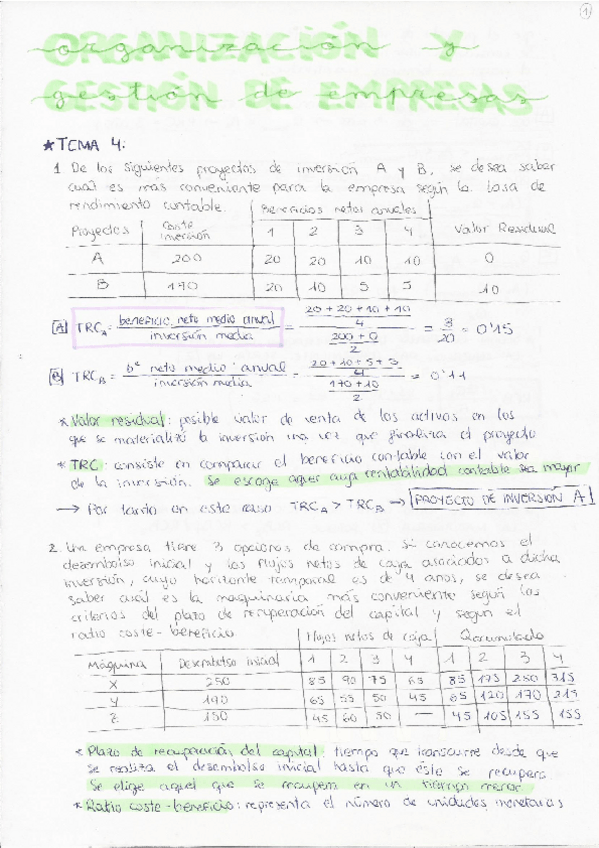 1
ORGANIZACIÓN Y
GESTIÓN DE EMPRESAS
* TEMA 4.
1. De los siguientes proyectos de inversión A y B, se desea saber
cual es más conveniente para la empresa según la tasa de
rendimiento contable.
Beneficios netos anuales
Proyectos Coste inversión 1 2 3 4 Valor Residual
A 200 20 20 10 10 0
B 170 20 10 5 5 10
A TRC_A = beneficio neto medio anual / inversión media = (20+20+10+10 / 4) / (200+0 / 2) = 3/20 = 0'15
B TRC_B = bº neto medio anual / inversión media = (20+10+5+5 / 4) / (170+10 / 2) = 0'11
* Valor residual: posible valor de venta de los activos en los
que se materializó la inversión una vez que finaliza el proyecto
* TRC: consiste en comparar el beneficio contable con el valor
de la inversión. Se escoge aquel cuya rentabilidad contable sea mayor
→ Por tanto en este caso TRC_A > TRC_B → PROYECTO DE INVERSIÓN A
2. Una empresa tiene 3 opciones de compra. Si conocemos el
desembolso inicial y los flujos netos de caja asociados a dicha
inversión, cuyo horizonte temporal es de 4 años, se desea
saber cuál es la maquinaria más conveniente según los
criterios del plazo de recuperación del capital y según el
ratio coste-beneficio
Flujos netos de caja Acumulado
Máquina Desembolso inicial 1 2 3 4 1 2 3 4
X 250 85 90 75 65 85 175 250 315
Y 190 65 55 50 45 65 120 170 215
Z 150 45 60 50 — 45 105 155 155
* Plazo de recuperación del capital: tiempo que transcurre desde que
se realiza el desembolso inicial hasta que éste se recupera
Se elige aquel que se recupera en un tiempo menor
* Ratio coste-beneficio: representa el número de unidades monetarias